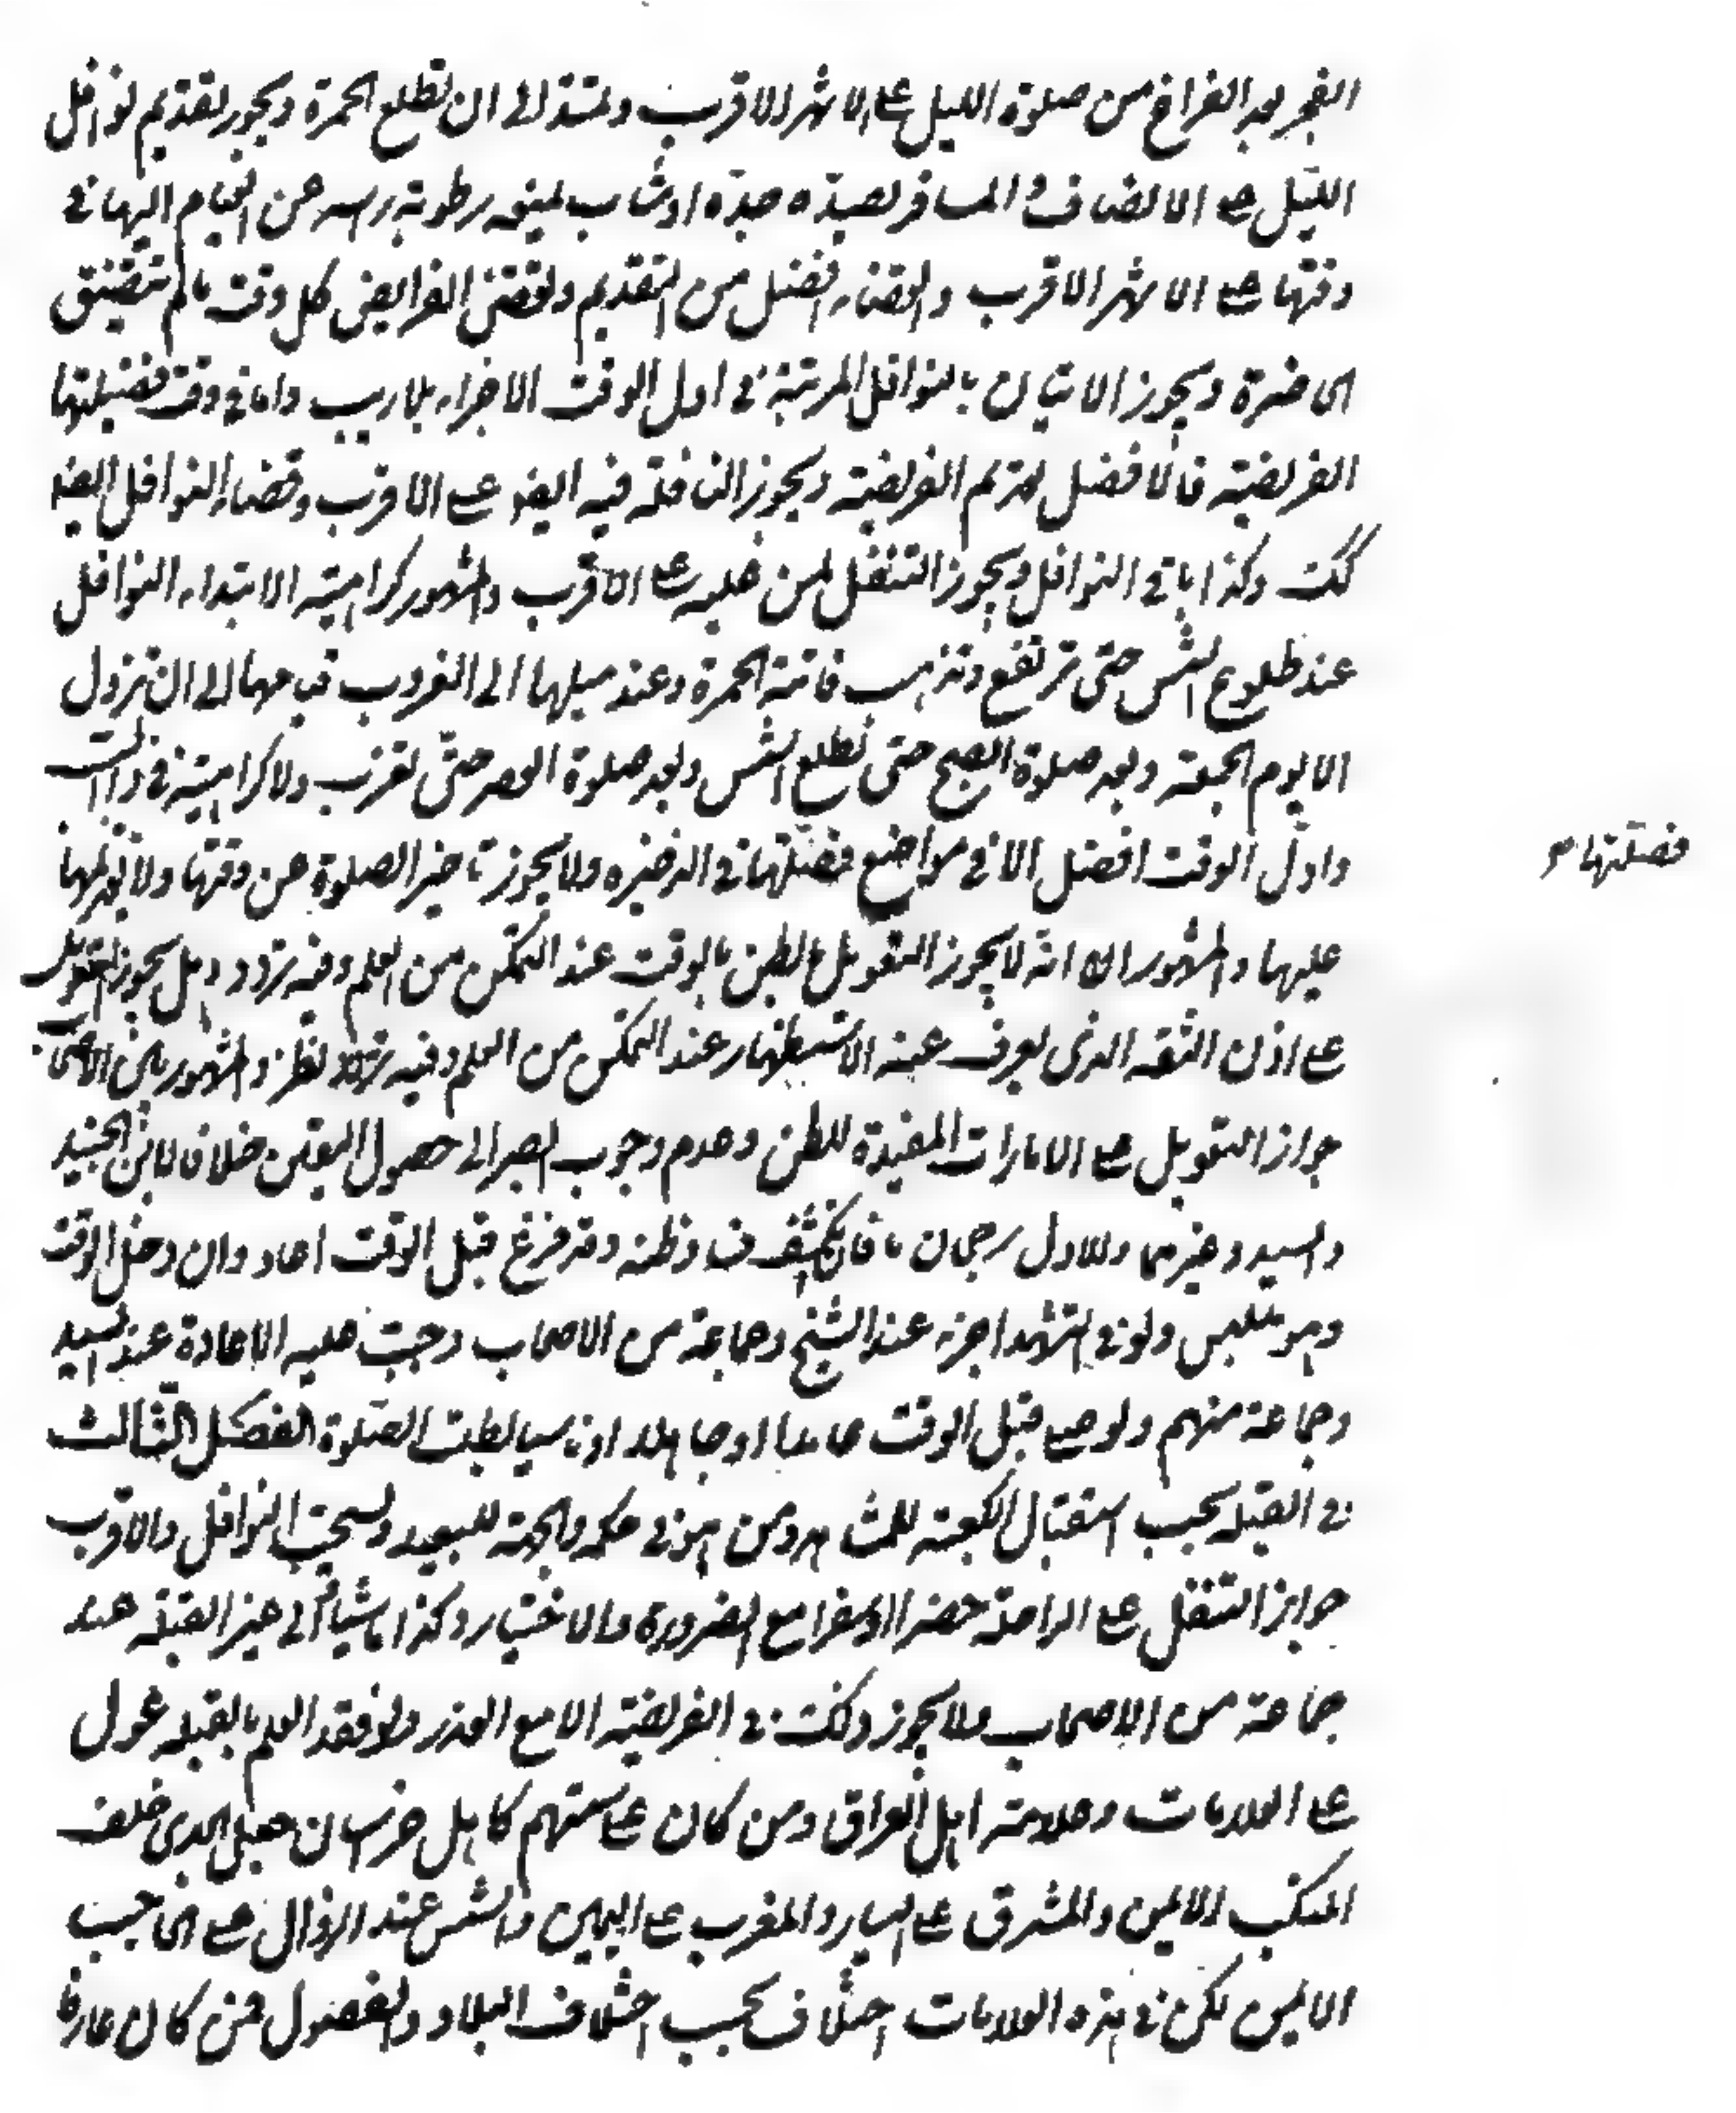 الفجر بعد الفراغ من صلوة الليل على الاشهر الاقرب ويمتد الى ان تطلع الحمرة ويجوز تقديم نوافل
الليل على الانتصاف المسافر يصده جده او شاب يمنعه رطوبة راسه عن القيام اليها في
وقتها على الاشهر الاقرب والقضاء افضل من التقديم وتقضى الفرايض كل وقت ما لم تتضيق
الحاضرة ويجوز الاتيان بالنوافل المرتبة في اول الوقت الاجزاء بلا ريب واما في وقت فضيلتها
الفريضة فالافضل تقديم الفريضة ويجوز النافلة فيه ايضا على الاقرب وقضاء النوافل ايضا
كك وكذا باقي النوافل ويجوز التنفل لمن عليه على الاقرب والمشهور كراهية الابتداء النوافل
عند طلوع الشمس حتى ترتفع وتذهب الحمرة وعند ميلها الى الغروب قيامها الى ان تزول
الا يوم الجمعة وبعد صلوة الصبح حتى تطلع الشمس وبعد صلوة العصر حتى تغرب ولا كراهية في ذوات
واول الوقت افضل الا في مواضع فصلتها في الذخيرة ولا يجوز تاخير الصلوة عن وقتها ولا تقديمها
فصلتها
عليها والمشهور انه لا يجوز التعويل الظن بالوقت عند التمكن من العلم وفيه تردد وهل يجوز التعويل
على اذان الثقة الذي يعرف عنه الاستظهار عند التمكن من العلم وفيه نظر والمشهور بين الاصحاب
جواز التعويل على الامارات المفيدة للظن وعدم وجوب الصبر الى حصول اليقين خلافا لابن الجنيد
والسيد وغيرهما وللاول رجحان ما فان انكشف فساد ظنه وقد فرغ قبل الوقت اعاد وان دخل الوقت
وهو متلبس ولو في التشهد اجزء عند الشيخ وجماعة من الاصحاب وجبت عليه الاعادة عند السيد
وجماعة منهم ولو صلى قبل الوقت عامدا او جاهلا او ناسيا بطلت الصلوة الفصل الثالث
في القبلة يجب استقبال الكعبة للمشاهد ومن هو في مكة والجهة للبعيد ويستحب النوافل والاقرب
جواز التنفل على الراحلة حضرا وسفرا مع الضرورة والاختيار وكذا ماشيا الى غير القبلة عند
جماعة من الاصحاب ولا يجوز ذلك في الفريضة الا مع العذر ولو فقد العلم بالقبلة عول
على العلامات وعلامة اهل العراق ومن كان على سمتهم كاهل خراسان جعل الجدى خلف
المنكب الايمن والمشرق على اليسار والمغرب على اليمين والشمس عند الزوال على الحاجب
الايمن لكن في هذه العلامات اختلاف بحسب اختلاف البلاد والفصول فمن كان عارفا